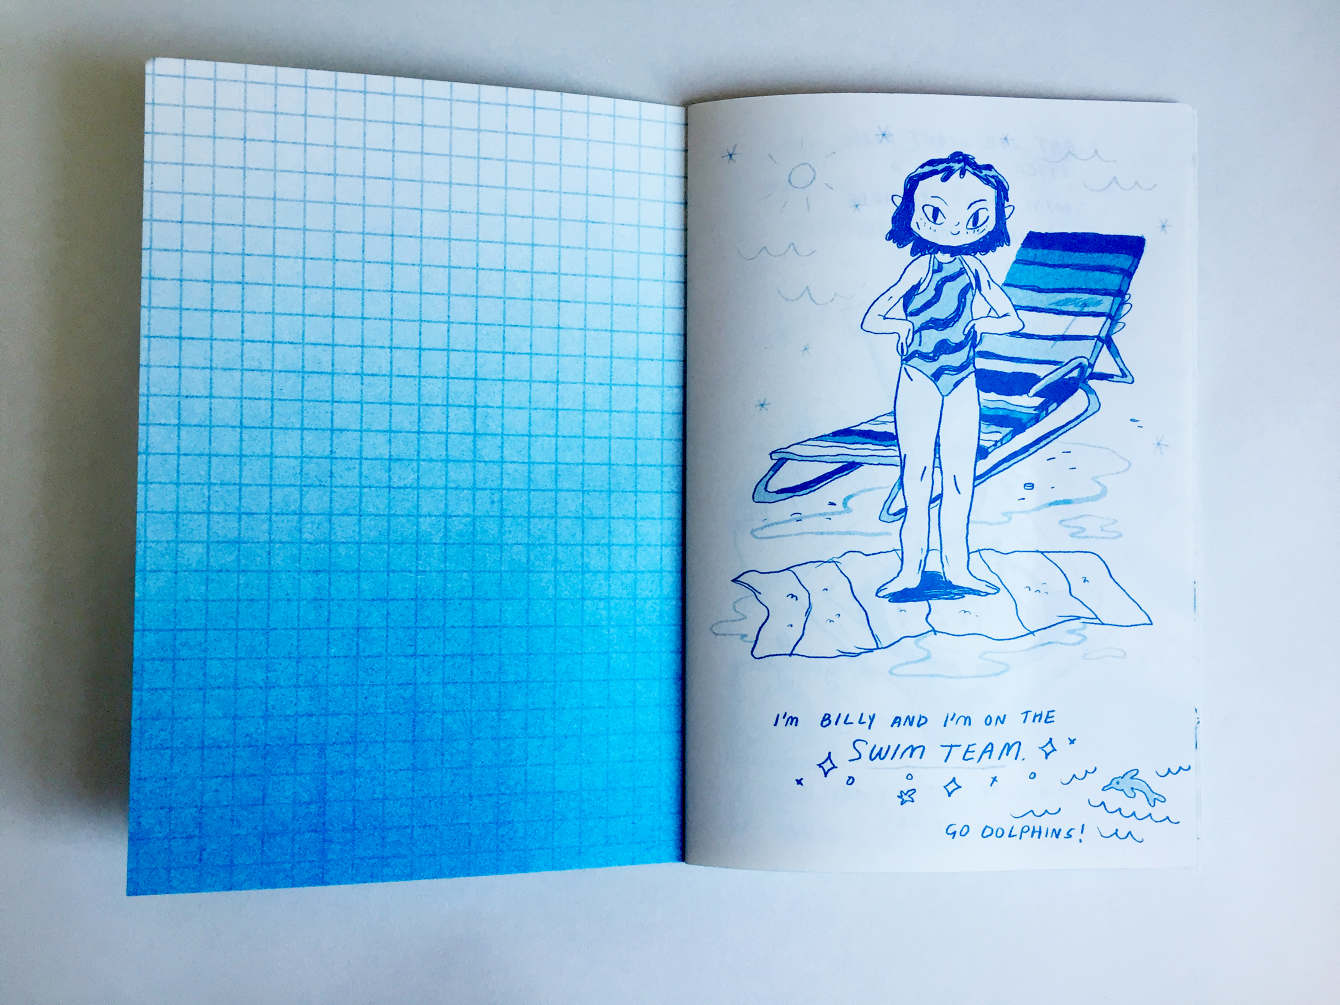 I'M BILLY AND I'M ON THE
SWIM TEAM.
GO DOLPHINS!